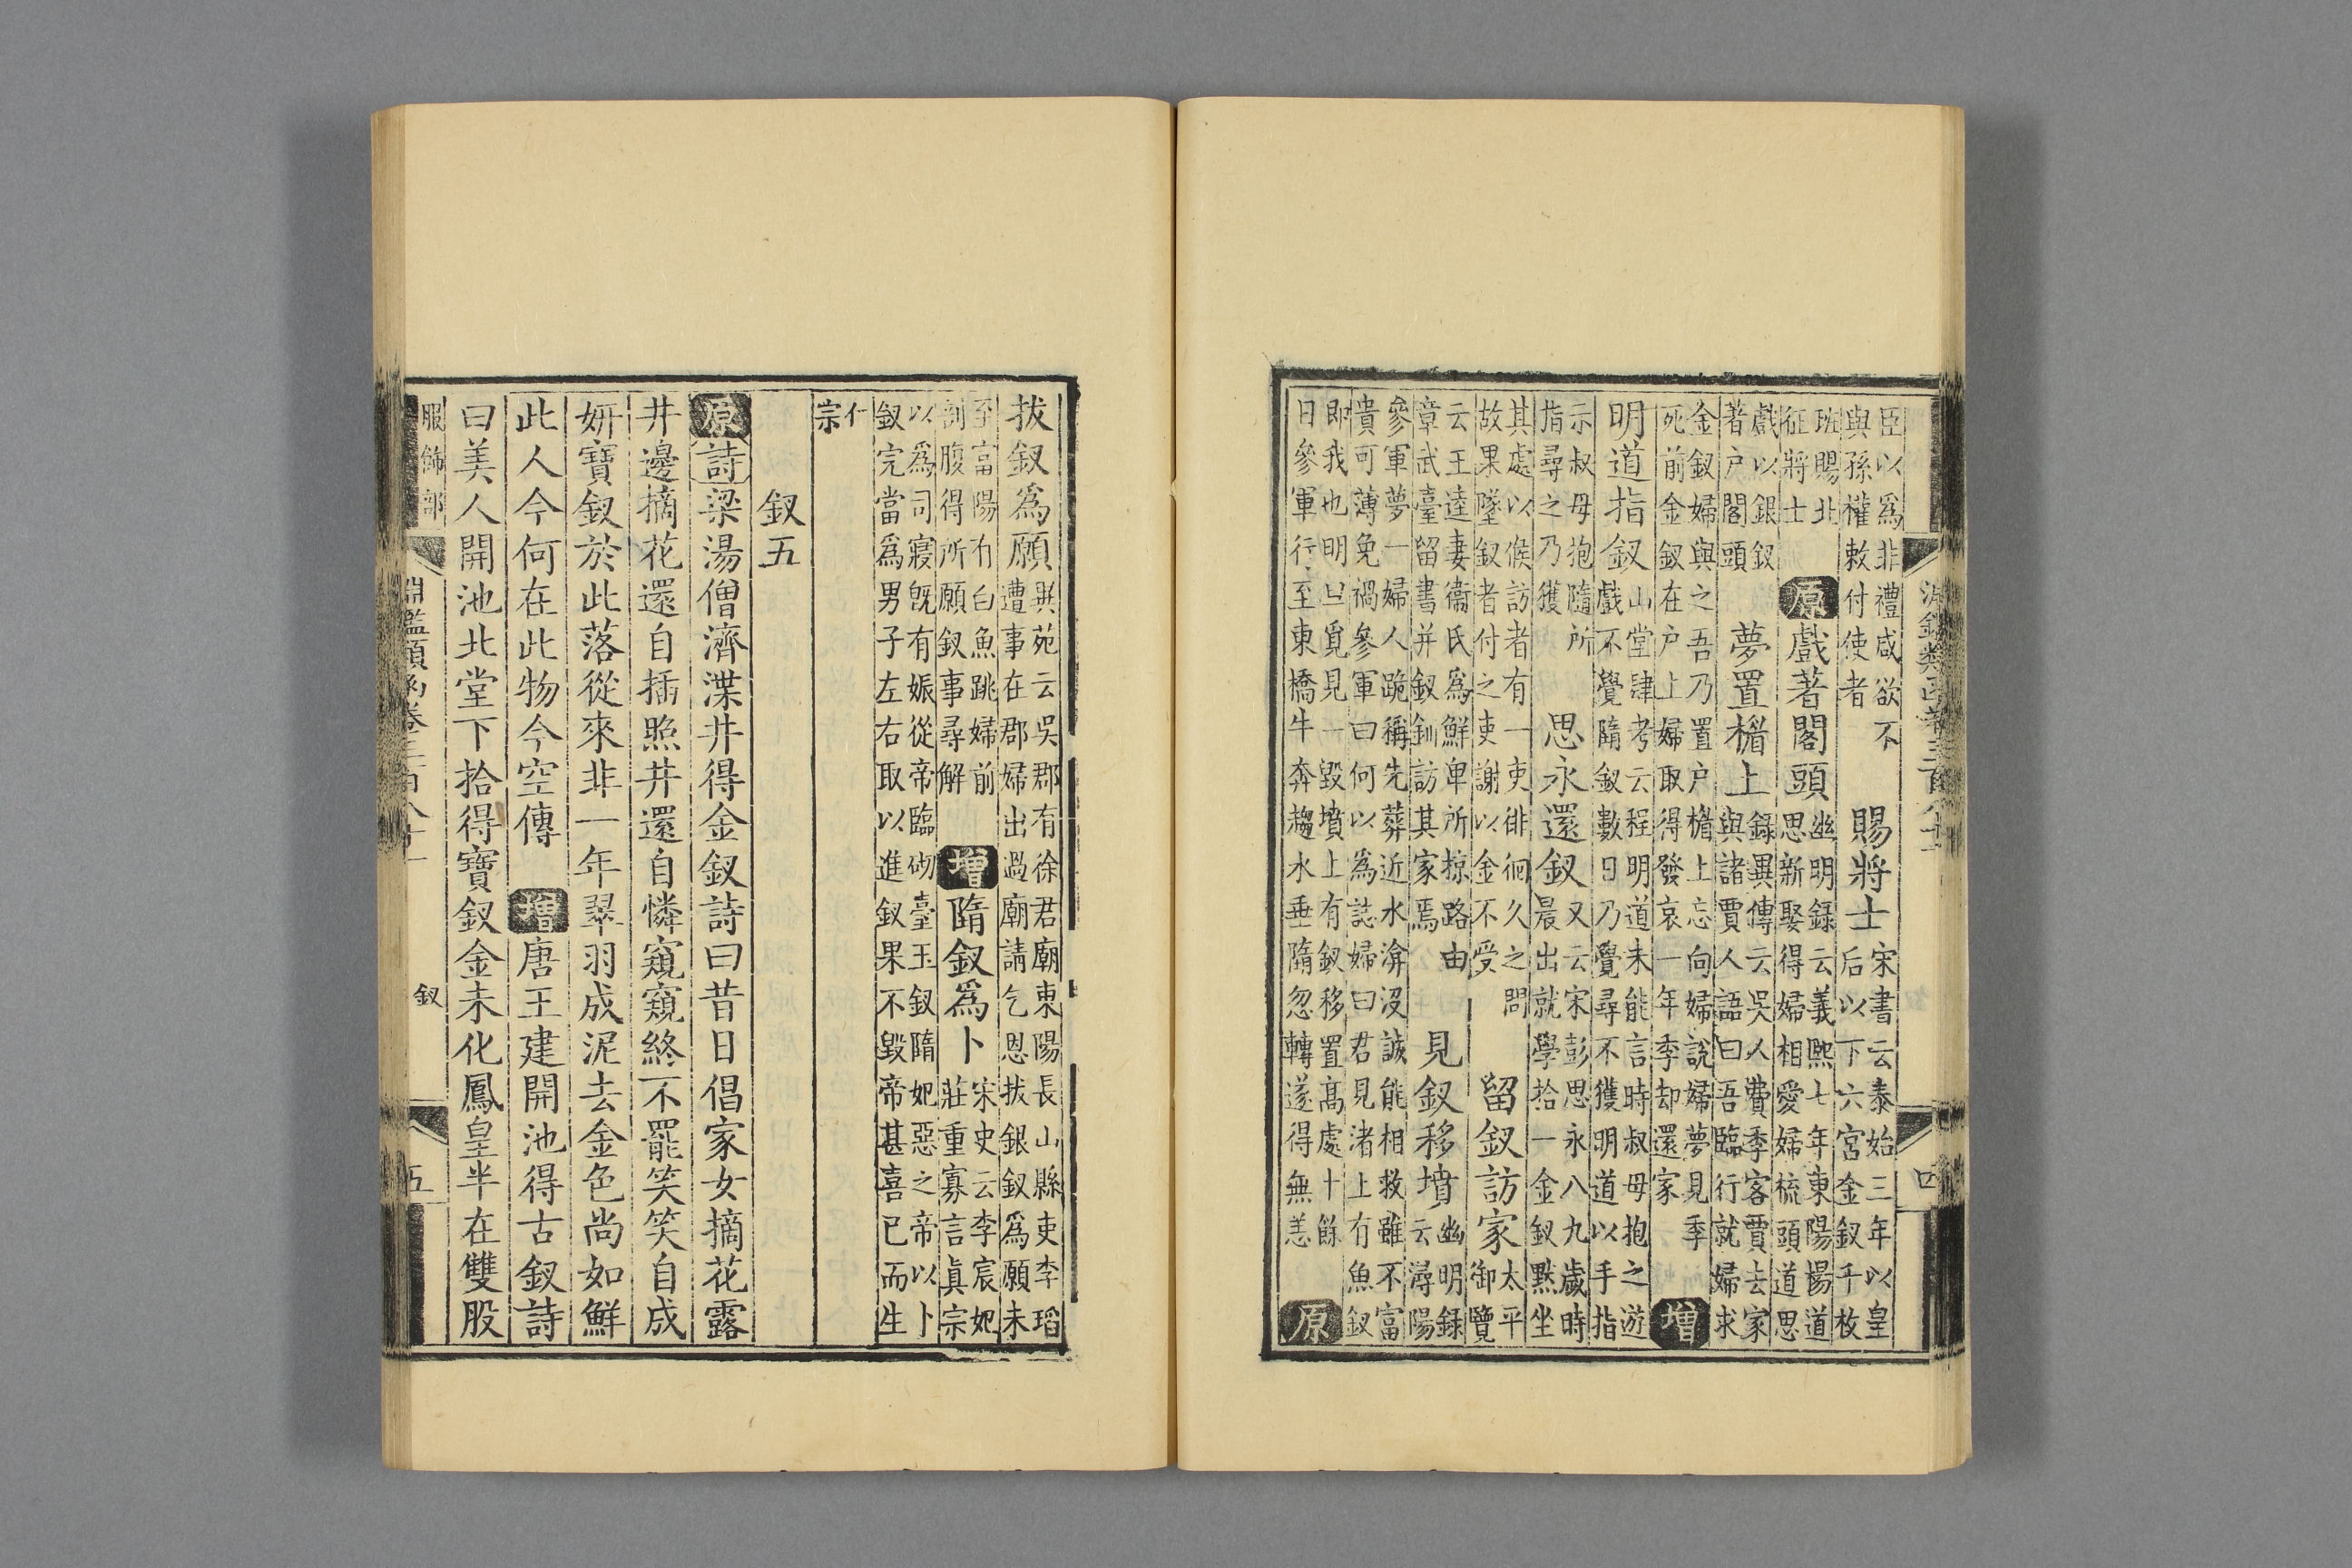 臣以為非禮咸欲不
與孫權敕付使者
賜將士
宋書云泰始三年以皇
后以下六宮金釵千枚
班賜北
征將士
原 戲著閣頭
幽明録云義熙七年東陽楊道
思新娶得婦相愛婦梳頭道思
戲以銀釵
著户閣頭
夢置楣上
録異傳云吳人費季客賈去家
與諸賈人語曰吾臨行就婦求
金釵婦與之吾乃置户楣上忘向婦說婦夢見季
死前金釵在户上婦取得發哀一年季却還家
增
明道指釵
山堂肆考云程明道未能言時叔母抱之遊
戲不覺隋釵數日乃覺尋不獲明道以手指
示叔母抱隨所
指尋之乃獲
思永還釵
又云宋彭思永八九歲時
晨出就學拾一金釵黙坐
其處以候訪者有一吏徘徊久之問
故果墜釵者付之吏謝以金不受
留釵訪家
太平
御覽
云王逵妻衞氏為鮮卑所掠路由
章武臺留書并釵釧訪其家焉
見釵移墳
幽明録
云潯陽
參軍夢一婦人跪稱先葬近水渰沒誠能相救雖不富
貴可薄免禍參軍曰何以為誌婦曰君見渚上有魚釵
即我也明旦覓見一毀墳上有釵移置髙處十餘
日參軍行至東橋牛奔趨水垂隋忽轉遂得無恙
原
四
拔釵為願
異苑云吳郡有徐君廟東陽長山縣吏李瑫
遭事在郡婦出過廟請乞恩拔銀釵為願未
至富陽有白魚跳婦前
剖腹得所願釵事尋解
增 隋釵為卜
宋史云李宸妃
莊重寡言眞宗
以為司寢旣有娠從帝臨砌臺玉釵隋妃惡之帝以卜
釵完當為男子左右取以進釵果不毀帝甚喜已而生
仁
宗
釵五
原 詩 梁湯僧濟渫井得金釵詩曰昔日倡家女摘花露
井邊摘花還自插照井還自憐窺窺終不罷笑笑自成
妍寶釵於此落從來非一年翠羽成泥去金色尚如鮮
此人今何在此物今空傳 增 唐王建開池得古釵詩
曰美人開池北堂下拾得寶釵金未化鳳皇半在雙股
服飾部
淵鑑類函卷三百八十一
釵
五